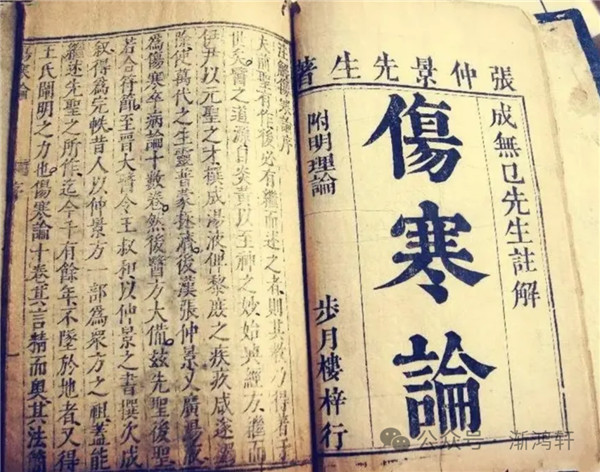 張仲景先生著
成無已先生註解
傷寒論
附明理論
步月樓梓行
註解傷寒論序
夫前聖有作後必有繼而述之者則其教乃得著于
世矣醫之道源自炎黃以至神之妙始興經方繼而
伊尹以元聖之才撰成湯液俾黎庶之疾疢咸遂蠲
除使萬代之生靈普蒙拯濟後漢張仲景又廣湯液
為傷寒卒病論十數卷然後醫方大備茲先聖後聖
若合符節至晉太醫令王叔和以仲景之書撰次成
叙得為完帙昔人以仲景方一部為眾方之祖蓋能
繼述先聖之所作迄今千有餘年不墜於地者又得
王氏闡明之力也傷寒論十卷其言精而奧其法簡
公众号·渐鸿轩